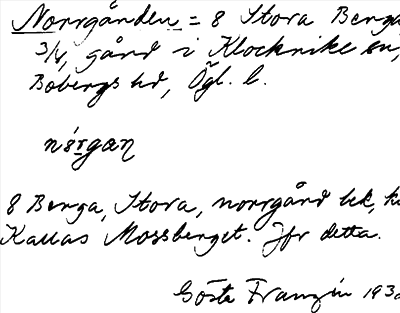 Norrgården = 8 Stora Berga
3/4, gård i Klockrike sn,
Bobergs hd, Ögl. l.
8 Berga, Stora, norrgård
Kallas Mossberget. Jfr detta.
Gösta Franzén 193